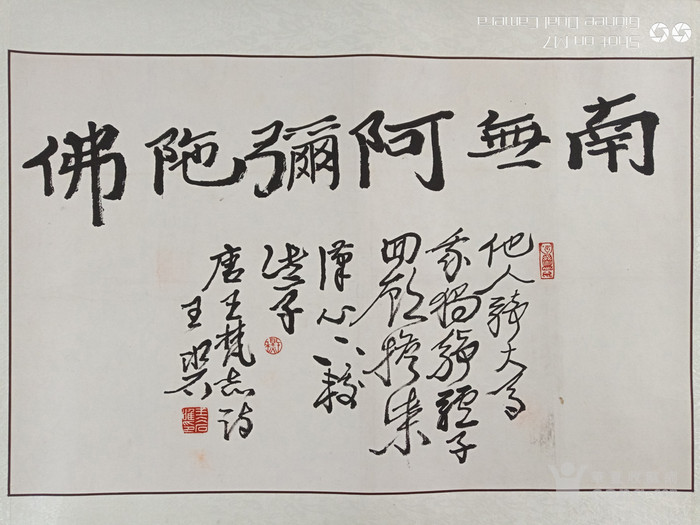 南無阿彌陁佛
他人騎大馬
我獨跨驢子
回顧擔柴
漢心下較
些子
唐王梵志詩